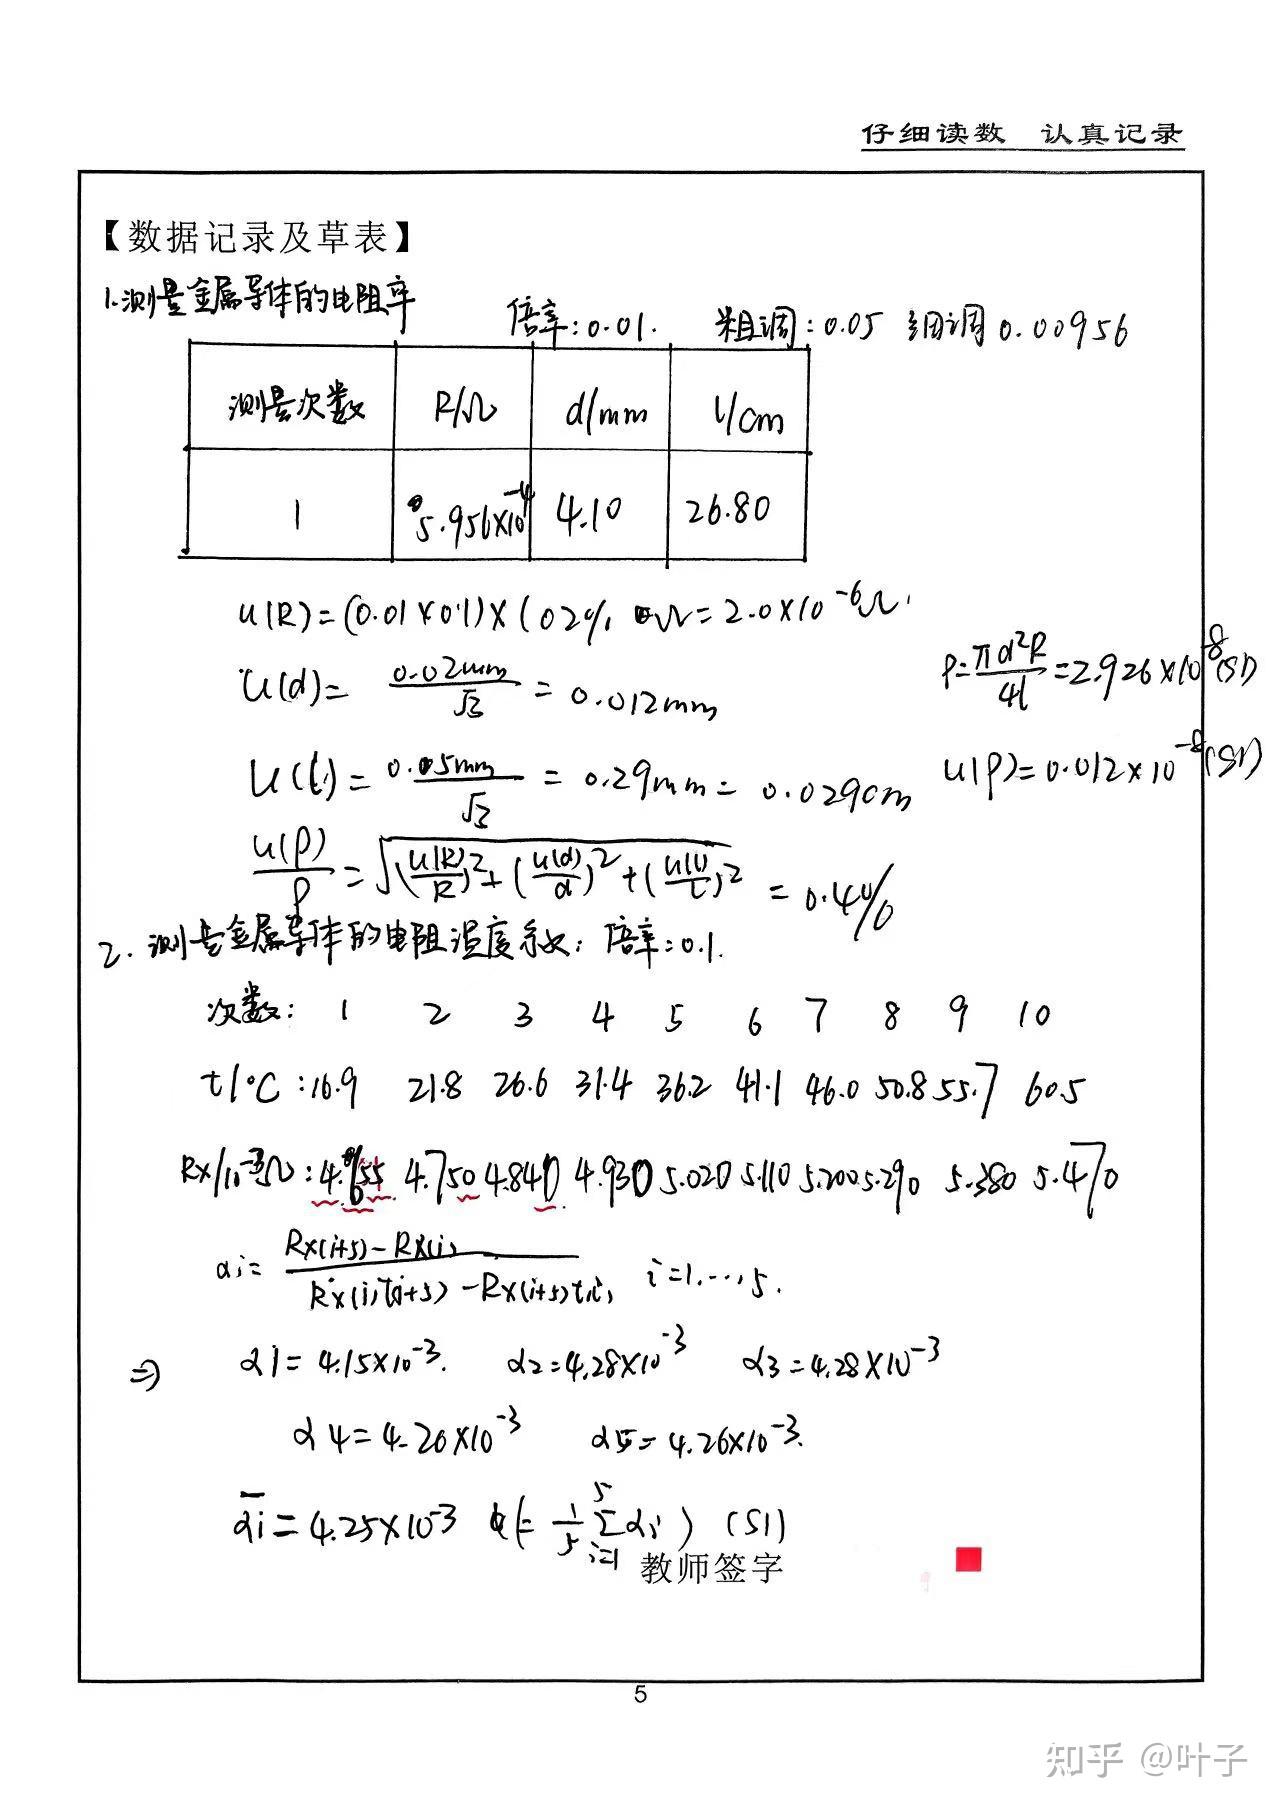 仔细读数 认真记录
【数据记录及草表】
1.测量金属导体的电阻率
倍率:0.01. 粗调:0.05 细调0.00956
测量次数 R/Ω d/mm l/cm
1 5.956×10⁻⁴ 4.10 26.80
u(R)=(0.01×0.1)×(0.2% Ω=2.0×10⁻⁶Ω.
u(d)= 0.02mm/√3 = 0.012mm
ρ=πd²R/4l=2.926×10⁻⁸(SI)
u(l)= 0.05mm/√3 = 0.29mm= 0.029cm
u(ρ)=0.012×10⁻⁸(SI)
u(ρ)/ρ=√(u(R)/R)²+(u(d)/d)²+(u(l)/l)² = 0.4%
2.测量金属导体的电阻温度系数: 倍率=0.1.
次数: 1 2 3 4 5 6 7 8 9 10
t/°C :16.9 21.8 26.6 31.4 36.2 41.1 46.0 50.8 55.7 60.5
Rx/10⁻³Ω: 4.655 4.750 4.840 4.930 5.020 5.110 5.200 5.290 5.380 5.470
αi= Rx(i+5)-Rx(i)/Rx(i)t(i+5)-Rx(i+5)t(i) i=1.…,5.
⇒ α1=4.15×10⁻³. α2=4.28×10⁻³ α3=4.28×10⁻³
α4=4.26×10⁻³ α5=4.26×10⁻³.
α̅i=4.25×10⁻³ (=1/5 Σ⁵ᵢ₌₁ αi) (SI)
教师签字
5
知乎 @叶子